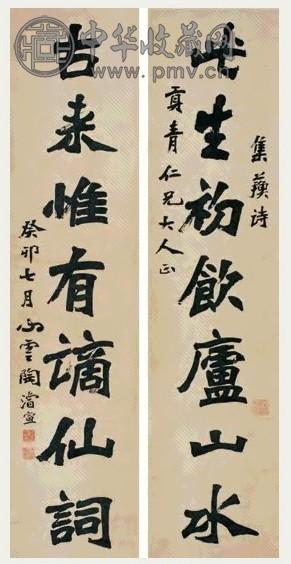 中华收藏网
www.pmv.cn
集蘓詩
此生初飲廬山水
青仁兄大人正
古来惟有謫仙詞
癸卯七月心雲陶濬宣